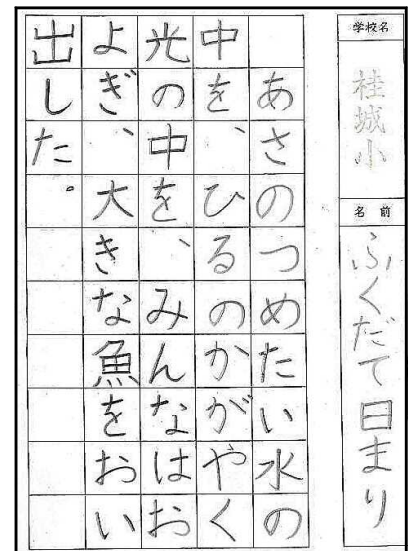 学校名
桂城小
名前
ふくだて日まり
あさのつめたい水の
中を、ひるのかがやく
光の中を、みんなはお
よぎ、大きな魚をおい
出した。